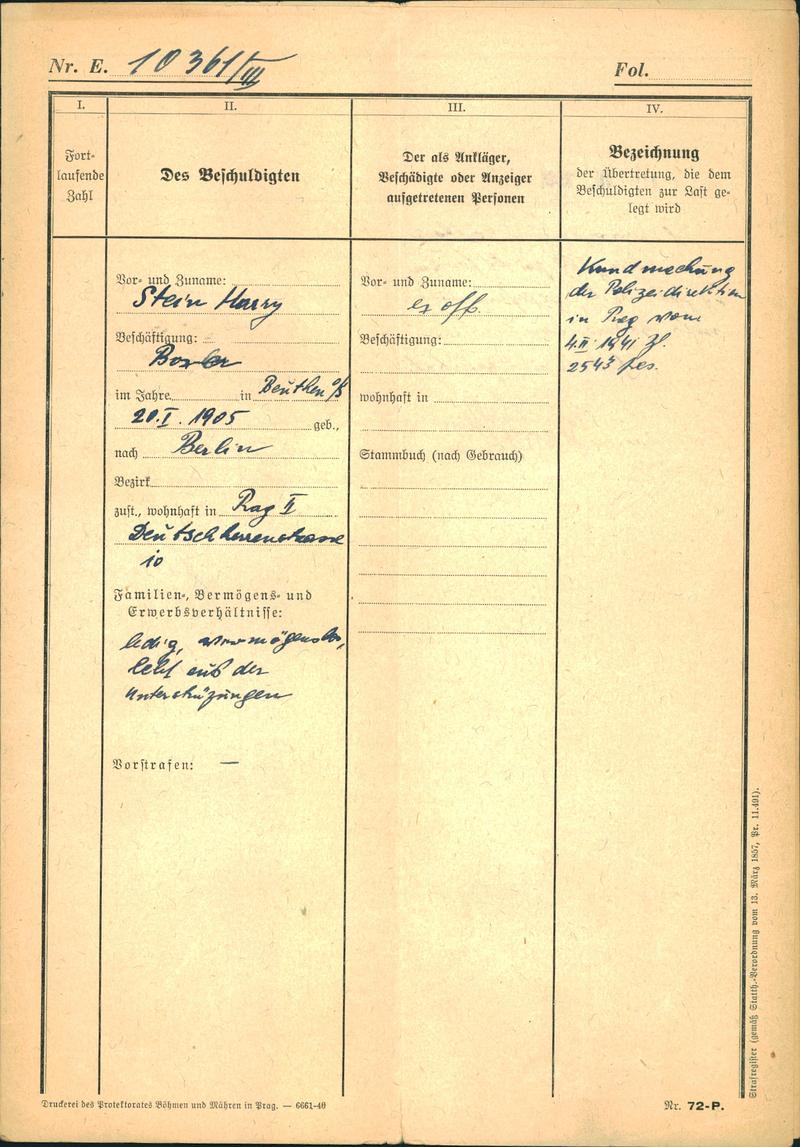 Nr. E. 10361/III
Fol.
I.
II.
III.
IV.
Fort-
laufende
Zahl
Des Beschuldigten
Der als Ankläger,
Beschädigte oder Anzeiger
aufgetretenen Personen
Bezeichnung
der Übertretung, die dem
Beschuldigten zur Last ge-
legt wird
Vor- und Zuname:
Stein Harry
Beschäftigung:
Boxer
im Jahre in Beuthen o/S
20.I.1905 geb.,
nach Berlin
Bezirk
zust., wohnhaft in Prag II
Deutschherrenstrasse
10
Familien-, Vermögens- und
Erwerbsverhältnisse:
ledig, vermögenslos,
lebt aus der
Unterstüzungen
Vorstrafen: —
Vor- und Zuname:
ex off.
Beschäftigung:
wohnhaft in
Stammbuch (nach Gebrauch)
Kundmachung
der Polizeidirektion
in Prag vom
4.II 1941 Zl.
2543 pres.
Strafregister (gemäß Statth.-Verordnung vom 13. März 1857, Pr. 11.491).
Druckerei des Protektorates Böhmen und Mähren in Prag. — 6661-40
Nr. 72-P.